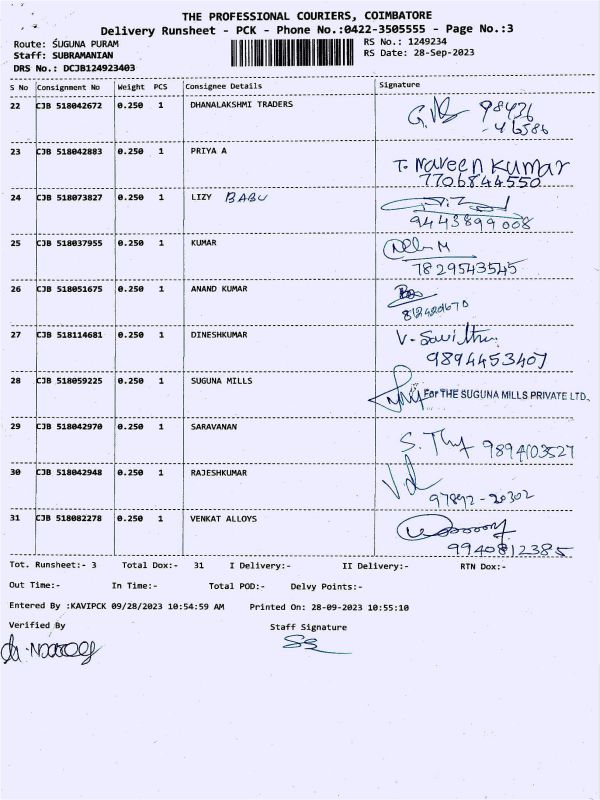 THE PROFESSIONAL COURIERS, COIMBATORE
Delivery Runsheet - PCK - Phone No.:0422-3505555 - Page No.:3
Route: SUGUNA PURAM RS No.: 1249234
Staff: SUBRAMANIAN RS Date: 28-Sep-2023
DRS No.: DCJB124923403
S No Consignment No Weight PCS Consignee Details Signature
22 CJB 518042672 0.250 1 DHANALAKSHMI TRADERS 98436
-46586
23 CJB 518042883 0.250 1 PRIYA A T. Naveen Kumar
7706844550
24 CJB 518073827 0.250 1 LIZY BABU
9443899008
25 CJB 518037955 0.250 1 KUMAR
7829543545
26 CJB 518051675 0.250 1 ANAND KUMAR
27 CJB 518114681 0.250 1 DINESHKUMAR
9894453407
28 CJB 518059225 0.250 1 SUGUNA MILLS For THE SUGUNA MILLS PRIVATE LTD.,
29 CJB 518042970 0.250 1 SARAVANAN 9894103527
30 CJB 518042948 0.250 1 RAJESHKUMAR
97892-20302
31 CJB 518082278 0.250 1 VENKAT ALLOYS
9940812385
Tot. Runsheet:- 3 Total Dox:- 31 I Delivery:- II Delivery:- RTN Dox:-
Out Time:- In Time:- Total POD:- Delvy Points:-
Entered By :KAVIPCK 09/28/2023 10:54:59 AM Printed On: 28-09-2023 10:55:10
Verified By Staff Signature